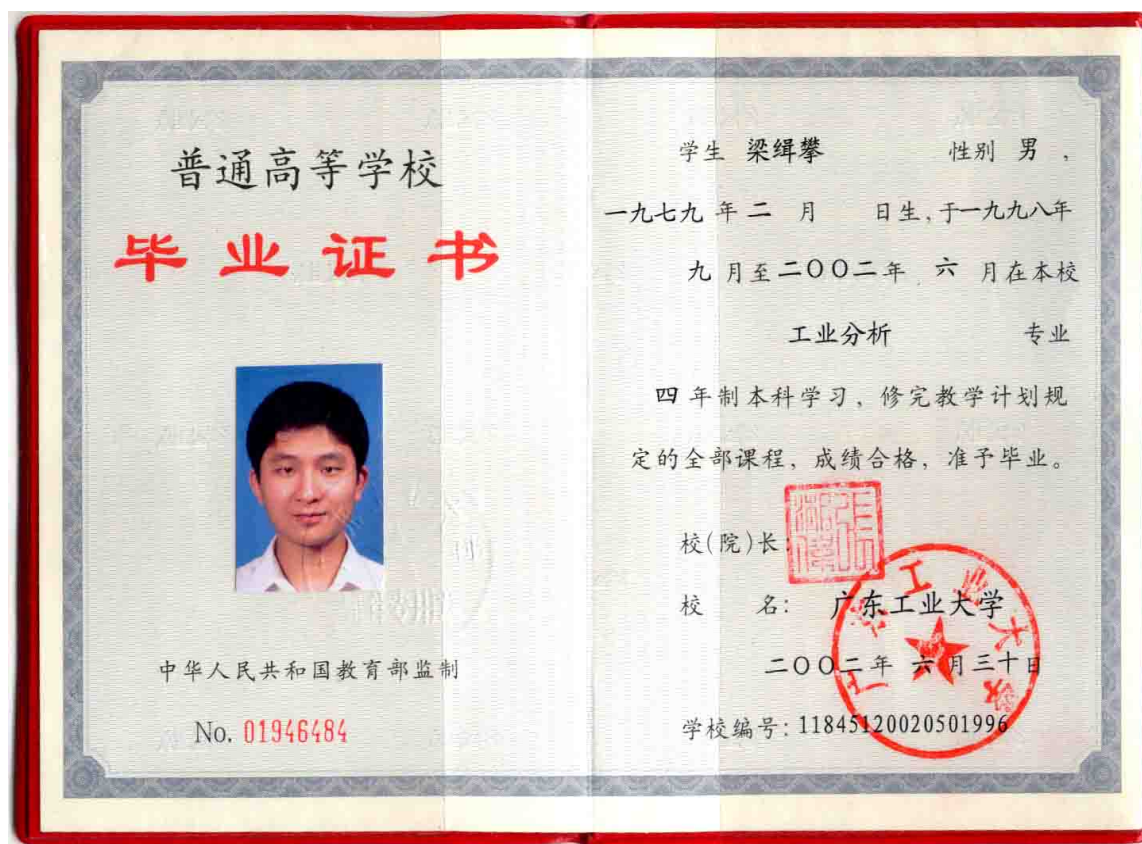 普通高等学校
毕业证书
中华人民共和国教育部监制
No. 01946484
学生 梁缉攀 性别 男 ，
一九七九 年 二 月 日生，于一九九八年
九 月至二〇〇二年 六 月在本校
工业分析 专业
四 年制本科学习，修完教学计划规
定的全部课程，成绩合格，准予毕业。
校(院)长:
校 名: 广东工业大学
二〇〇二年 六月三十日
学校编号: 11845120020501996
广东工业大学